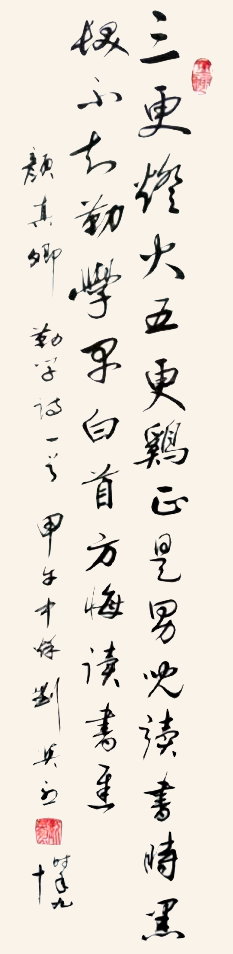 三更燈火五更鷄正是男兒讀書時黑
髮不知勤學早白首方悔讀書遲
顏真卿 勤学詩一首 甲午中秋 劉
时年九
十